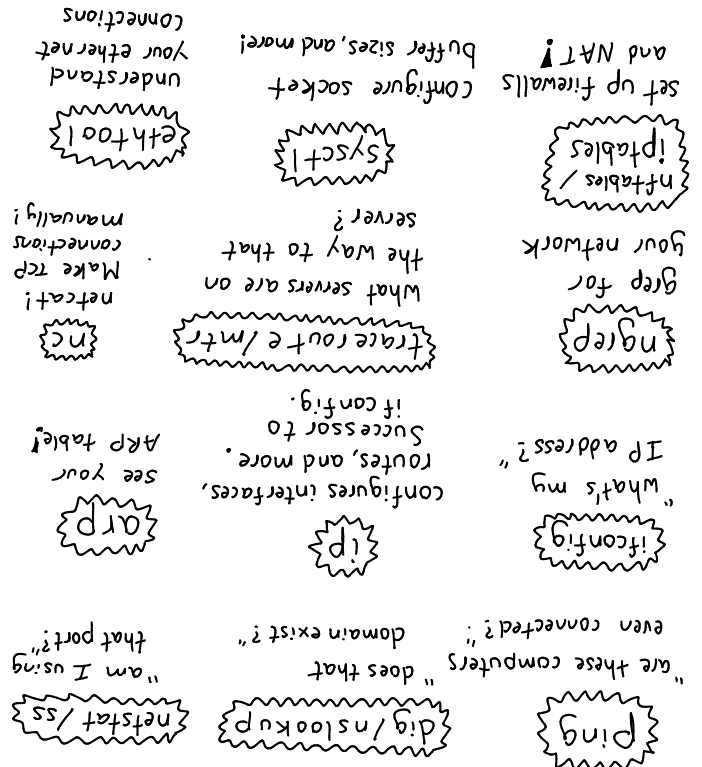 ping
"are these computers
even connected?"
dig/nslookup
"does that
domain exist?"
netstat/ss
"am I using
that port?"
ifconfig
"what's my
IP address?"
ip
configures interfaces,
routes, and more.
Successor to
ifconfig.
arp
see your
ARP table!
ngrep
grep for
your network
traceroute/mtr
what servers are on
the way to that
server?
nc
netcat!
Make TCP
connections
manually!
nftables/
iptables
set up firewalls
and NAT!
sysctl
configure socket
buffer sizes, and more!
ethtool
understand
your ethernet
connections